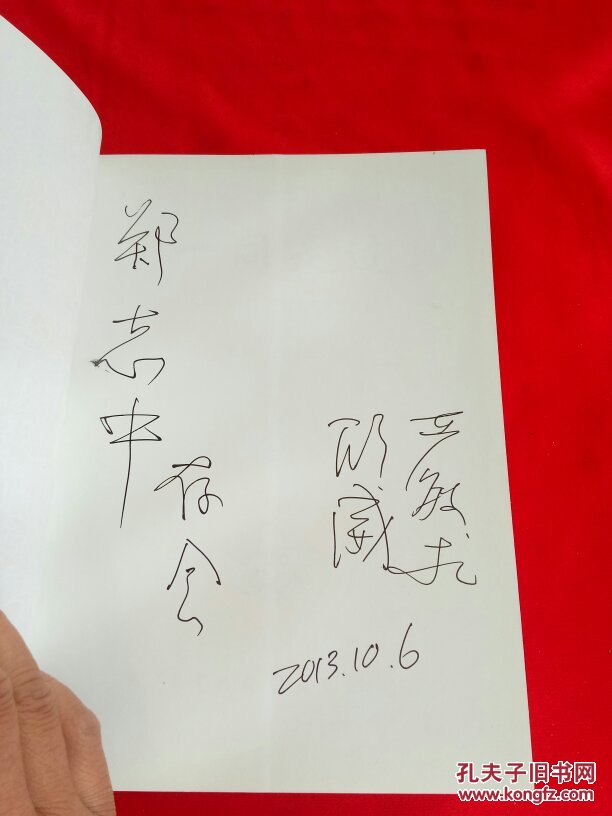 郑志中
存念
顾威
2013.10.6
孔夫子旧书网
www.kongfz.com